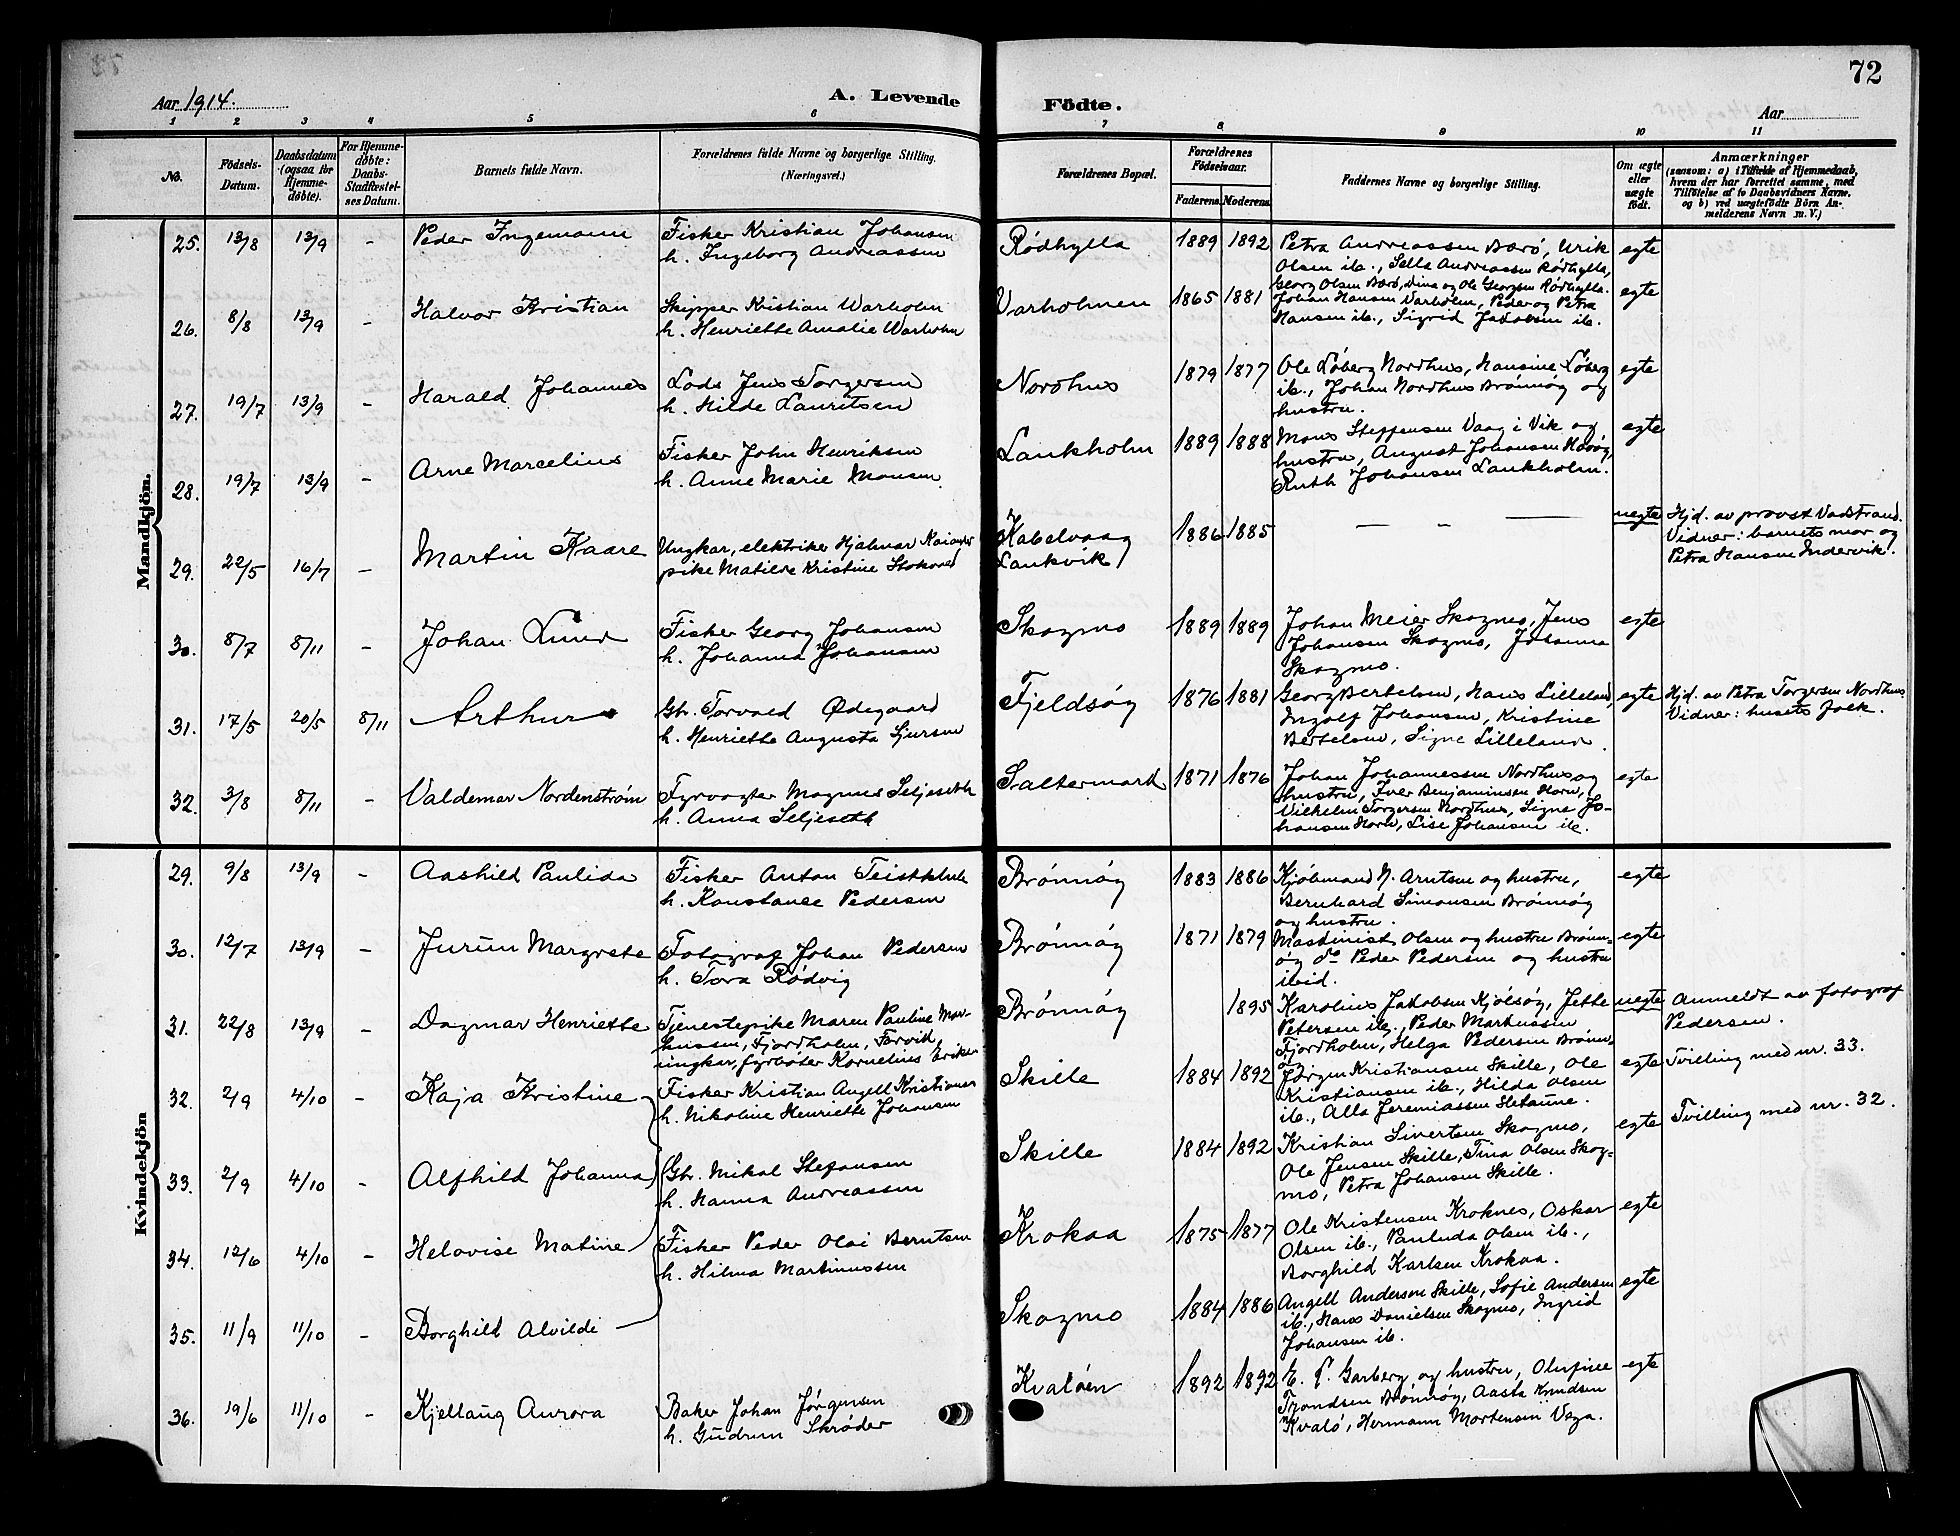 72
Aar 1914.
A. Levende Födte.
Aar
1 2 3 4 5 6 7 8 9 10 11
No.
Födsels-Datum.
Daabsdatum (ogsaa for Hjemmedøbte).
For Hjemmedøbte: Daabs-Stadfæstelses Datum.
Barnets fulde Navn.
Forældrenes fulde Navne og borgerlige Stilling.
(Næringsvei.)
Forældrenes Bopæl.
Forældrenes Födselsaar.
Faderens. Moderens.
Faddernes Navne og borgerlige Stilling.
Om ægte eller uægte født.
Anmærkninger
(saasom: a) i Tilfælde af Hjemmedaab,
hvem der har forrettet samme, med
Tilføielse af to Daabsvidners Navne.
og b) ved uægtefødte Börn Anmelderens Navn m. V.)
Mandkjön.
25. 13/8 13/9 - Peder Ingemann
Fisker Kristian Johansen
h. Ingeborg Andreassen
Rödhylla 1889 1892
Petra Andreassen Bærö, Urik
Olsen ib., Sella Andreassen Rödhylla,
Georg Olsen Bærö, Dina og Ole Georgsen Rödhylla.
egte
26. 8/8 13/9 - Halvor Kristian
Skipper Kristian Varholm
h. Henriette Amalie Varholm
Varholmen 1865 1881
Johan Hansen Varholm, Peder og Petra
Hansen ib., Sigrid Jakobsen ib.
egte
27. 19/7 13/9 - Harald Johannes
Lods Jens Torgersen
h. Hilde Lauritsen
Nordhus 1879 1877
Ole Löberg Nordhus, Hansine Löberg
ib., Johan Nordhus Brönnög og
hustru.
egte
28. 19/7 13/9 - Arne Marcelius
Fisker John Henriksen
h. Anne Marie Monsen
Lankholm 1889 1888
Mons Steffensen Vaag i Vik og
hustru, August Johansen Havög,
Ruth Johansen Lankholm.
egte
29. 22/5 16/7 - Martin Kaare
Ungkar, elektriker Hjalmar
pike Matilde Kristine
Kabelvaag
Lankvik 1886 1885
— — —
uegte
Hjd. av provst Vadstrand.
Vidner: barnets mor og
Petra Hansen Indervik.
30. 8/7 8/11 - Johan Lund
Fisker Georg Johansen
h. Johanna Johansen
Skogmo 1889 1889
Johan Meier Skogmo, Jens
Johansen Skogmo, Johanna
Skogmo.
egte
31. 17/5 20/5 8/11 Arthur
Gbr. Torvald Ødegaard
h. Henriette Augusta Sjursen
Fjeldsög 1876 1881
Georg Bertelsen, Hans Lilleland,
Ingolf Johansen, Kristine
Bertelsen, Signe Lilleland.
egte
Hjd. av Petra Torgersen Nordhus
Vidner: husets folk.
32. 3/8 8/11 - Valdemar Nordenström
Fyrvogter Magnus Seljeseth
h. Anna Seljeseth
Saltermark 1871 1876
Johan Johannessen Nordhus og
hustru, Iver Benjaminsen Horn,
Vilhelm Torgersen Nordhus, Signe Jo-
hansen Horn, Lise Johansen ib.
egte
Kvindekjön
29. 9/8 13/9 - Aashild Paulida
Fisker Anton Teistklub
h. Konstanse Pedersen
Brönnög 1883 1886
Kjöbmand N. Arntsen og hustru,
Bernhard Simonsen Brönnög
og hustru.
egte
30. 12/7 13/9 - Jurun Margrete
Fotograf Johan Pedersen
h. Tora Rödvig
Brönnög 1871 1879
Maskinist Olsen og hustru Brönn-
ög do Peder Pedersen og hustru
ibid.
egte
31. 22/8 13/9 - Dagmar Henriette
Tjenestepike Maren Pauline Mar-
kussen, Fjordholm, Forvik,
ungkar, fyrböter Kornelius Erikse
Brönnög 1895
Karolius Jakobsen Kjölsög, Jette
Petersen ib., Peder Markussen
Fjordholm, Helga Pedersen Brönn-
ög
uegte
Anmeldt av fotograf
Pedersen.
32. 2/9 4/10 - Kaja Kristine
Fisker Kristian Angell Kristiansen
h. Nikoline Henriette Johansen
Skille 1884 1892
Jörgen Kristiansen Skille, Ole
Kristiansen ib., Hilda Olsen
ib., Alla Jeremiassen Sletaune.
egte
Tvilling med nr. 33.
33. 2/9 4/10 - Alfhild Johanna
Gbr. Mikal Stefansen
h. Hanna Andreassen
Skille 1884 1892
Kristian Sivertsen Skogmo,
Ole Jensen Skille, Tina Olsen Skog-
mo, Petra Johansen Skille.
egte
Tvilling med nr. 32.
34. 12/6 4/10 - Helovise Matine
Fisker Peder Olai Berntsen
h. Hilma Martinussen
Krokaa 1875 1877
Ole Kristensen Kroknes, Oskar
Olsen ib., Paulida Olsen ib.,
Borghild Karlsen Krokaa.
egte
35. 11/9 11/10 - Borghild Alvilde
Skogmo 1884 1886
Angell Andersen Skille, Sofie Andersen
ib., Hans Danielsen Skogmo, Ingrid
Johansen ib.
egte
36. 19/6 11/10 - Kjellaug Aurora
Baker Johan Jörgensen
h. Gudrun Skröder
Kvalöen 1892 1892
E. P. Garberg og hustru, Olufine
Trondsen Brönnög, Aasta Knudsen
Kvalö, Hermann Mortensen Vega.
egte